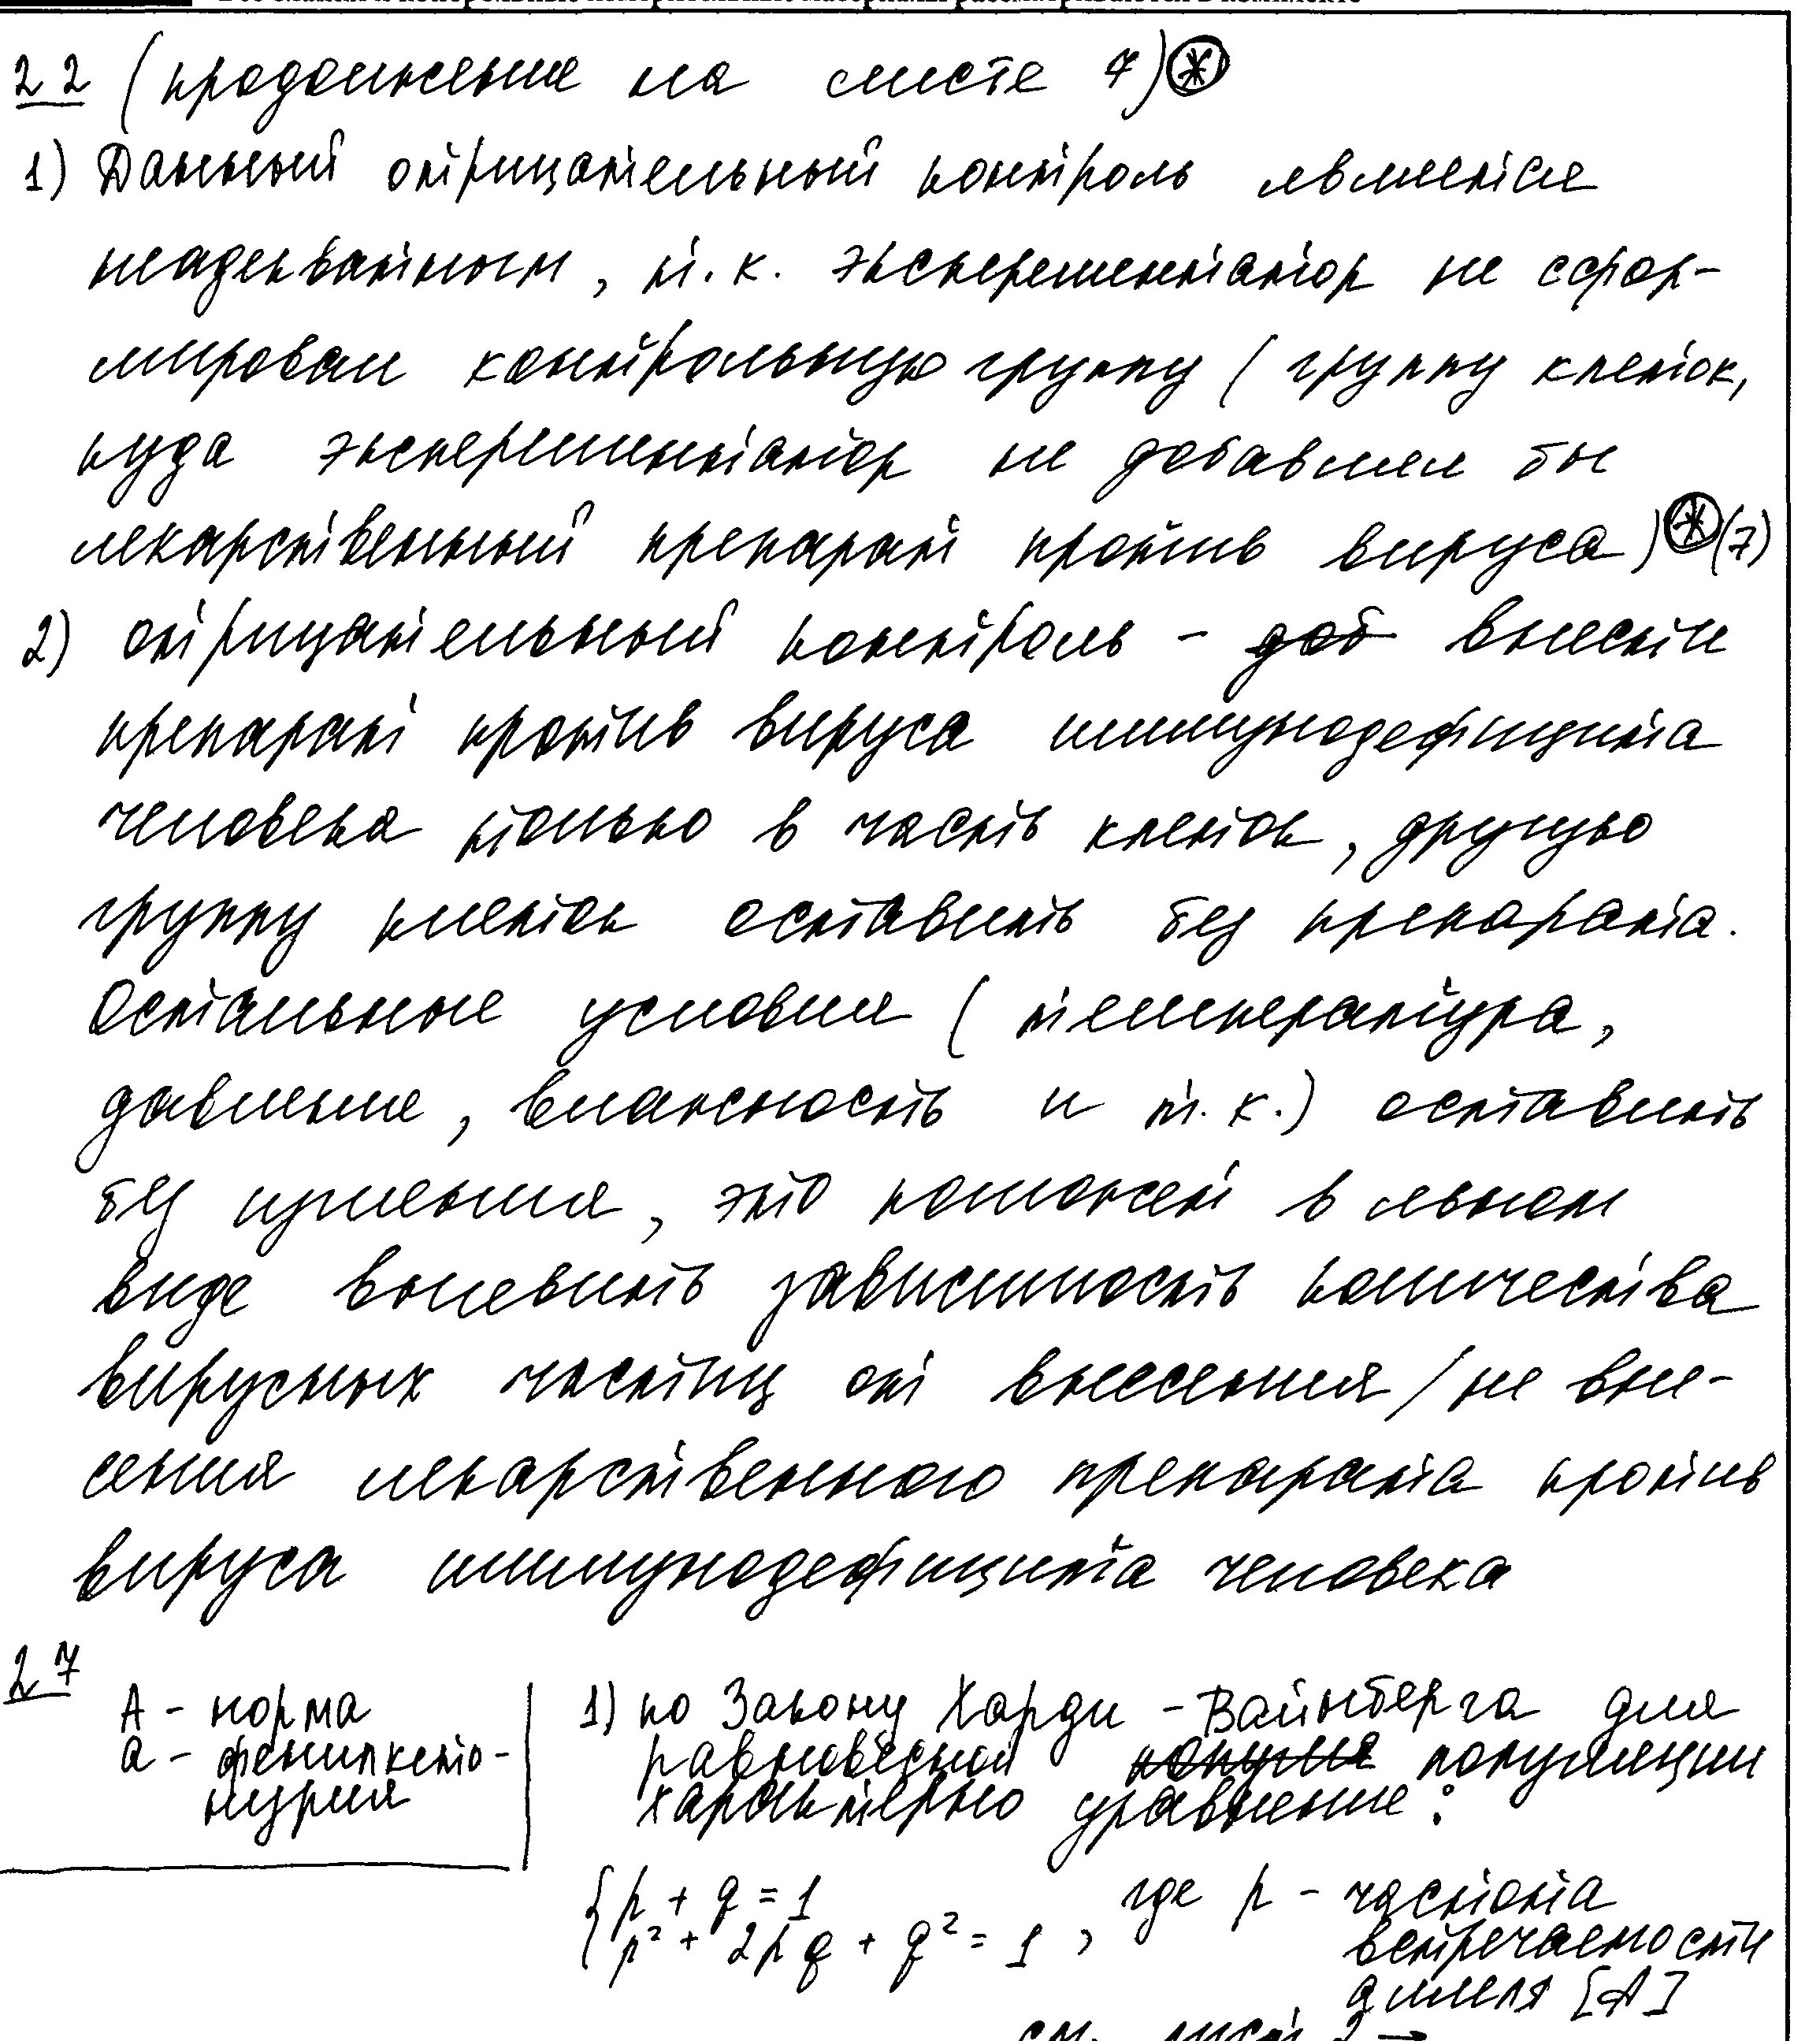 22 (продолжение на листе 7) ⊛
1) Данный отрицательный контроль является
неадекватным, т.к. эксперементатор не сфор-
мировал контрольную группу (группу клеток,
куда экспериментатор не добавлял бы
лекарственный препарат против вируса) ⊛(7)
2) отрицательный контроль - доб внести
препарат против вируса иммунодефицита
человека только в часть клеток, другую
группу клеток оставить без препарата.
Остальные условия (температура,
давление, влажность и т.к.) оставить
без изменения, это поможет в явном
виде выявить зависимость количества
вирусных частиц от внесения / не вне-
сения лекарственного препарата против
вируса иммунодефицита человека
27
А - норма
а - фенилкето-
нурия
1) по Закону Харди - Вайнберга для
равновесной популя популяции
характерно уравнение:
{ p + q = 1
p² + 2pq + q² = 1 , где p - частота
встречаемости
аллеля [A]
см. лист 2 →